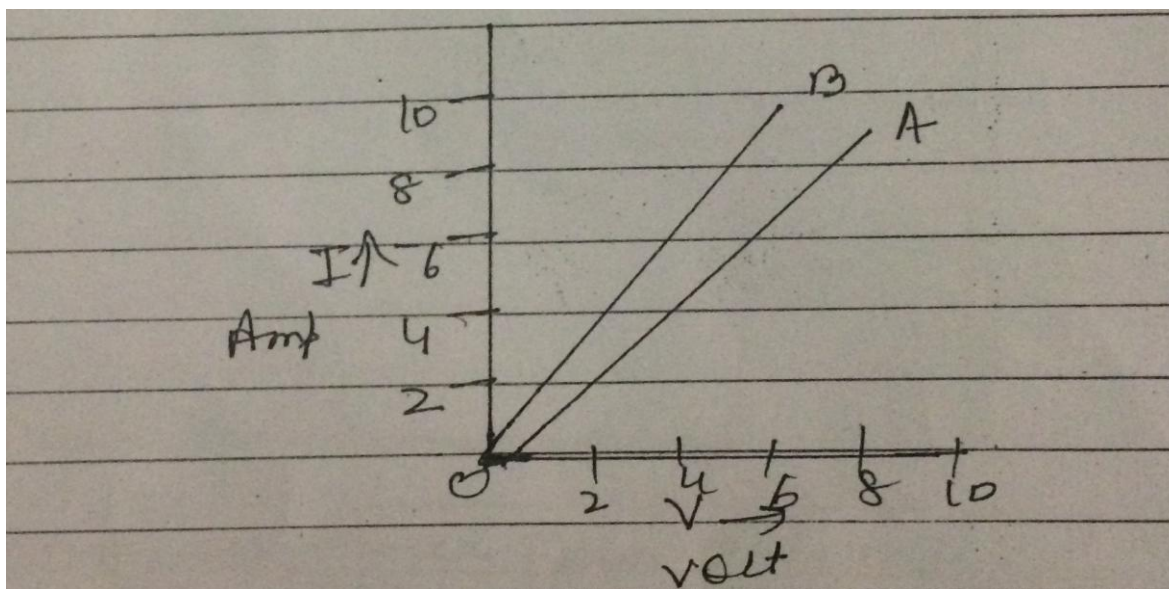 B
10
A
8
I↑ 6
Amp 4
2
O 2 4 6 8 10
V →
volt